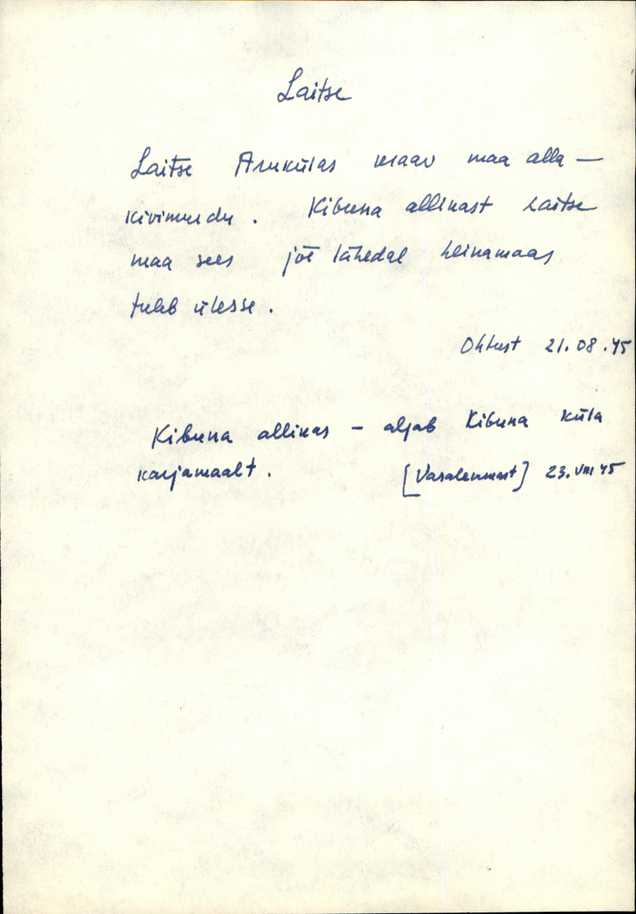 Laitse
Laitse Arukülas kraav maa alla –
kivimurdu. Kibuna allikast Laitse
maa sees jõe lähedal heinamaas
tuleb ülesse.
Ohtust 21.08.45
Kibuna allikas – algab Kibuna küla
karjamaalt. [Vasalemmast] 23.VIII 45